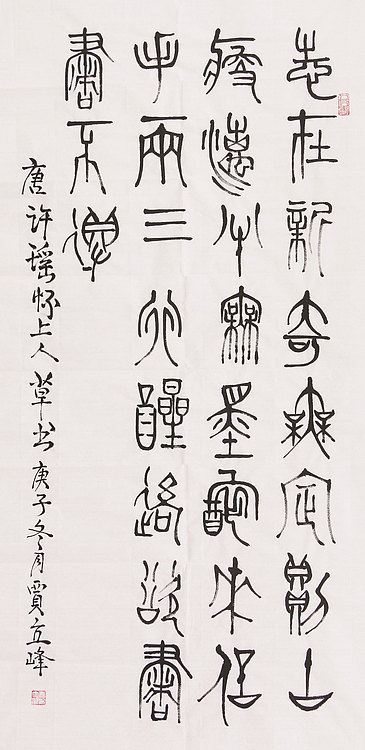 志在新奇無定則古
瘦漓半無墨醉來信
手兩三行醒後卻書
書不得
唐许瑶怀上人草书 庚子冬月賈立峰